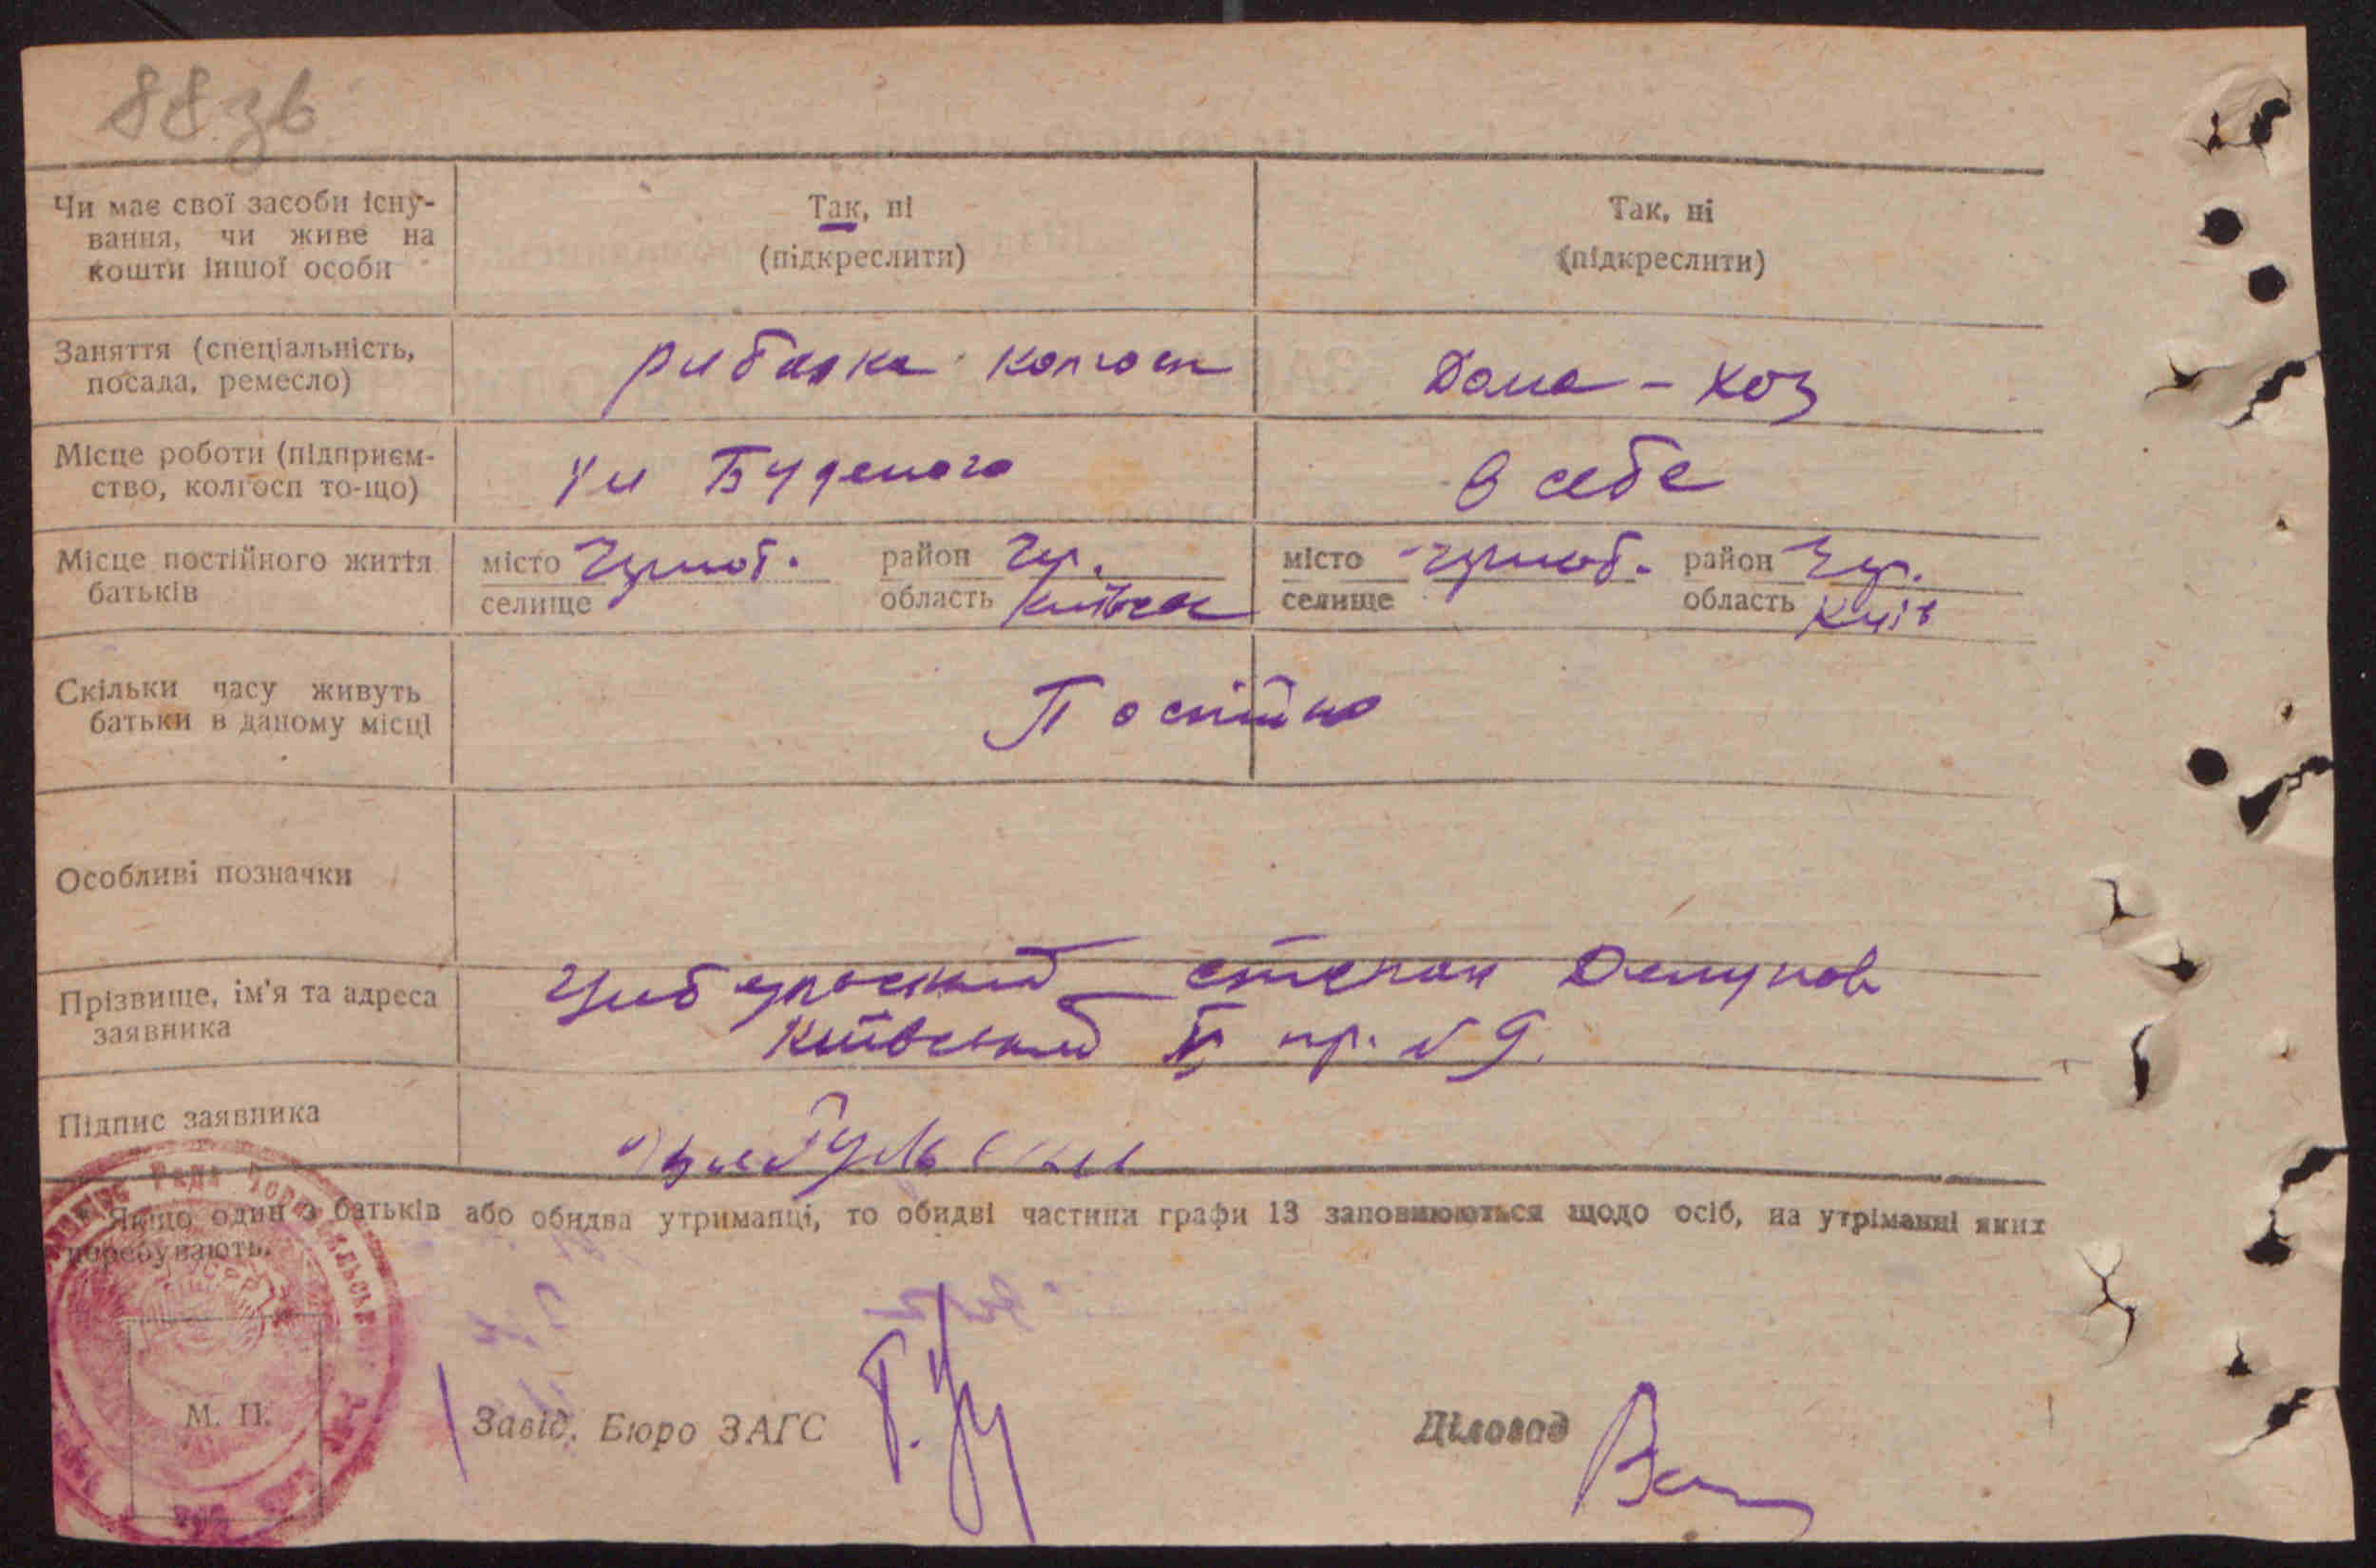 88 зв
Чи має свої засоби існу-
вання, чи живе на
кошти іншої особи
Так, ні
(підкреслити)
Так, ні
(підкреслити)
Заняття (спеціальність,
посада, ремесло)
рибалка колгосп
Дома - хоз
Місце роботи (підприєм-
ство, колгосп то-що)
Буденого
в себе
Місце постійного життя
батьків
місто Чорноб. район Чор.
селище область Київськ
місто Чорноб. район Чор.
селище область Київ
Скільки часу живуть
батьки в даному місці
Постійно
Особливі позначки
Прізвище, ім'я та адреса
заявника
Цибульский степан
Київський пр. № 9.
Підпис заявника
Цибульский
* Якщо один з батьків або обидва утриманці, то обидві частини графи 13 заповнюються щодо осіб, на утріманні яких
перебувають.
М. П.
Завід. Бюро ЗАГС
Діловод